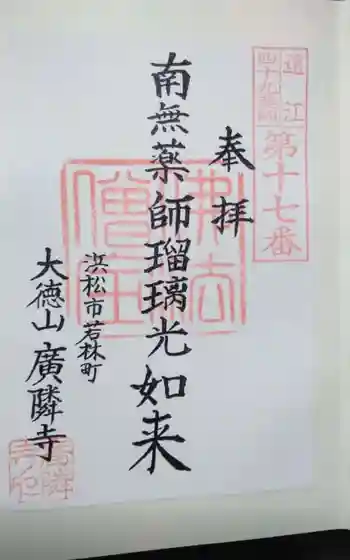 遠江
四十九薬師
第十七番
奉拝
南無薬師瑠璃光如来
浜松市若林町
大徳山廣隣寺
佛法
僧宝
廣隣
寺印